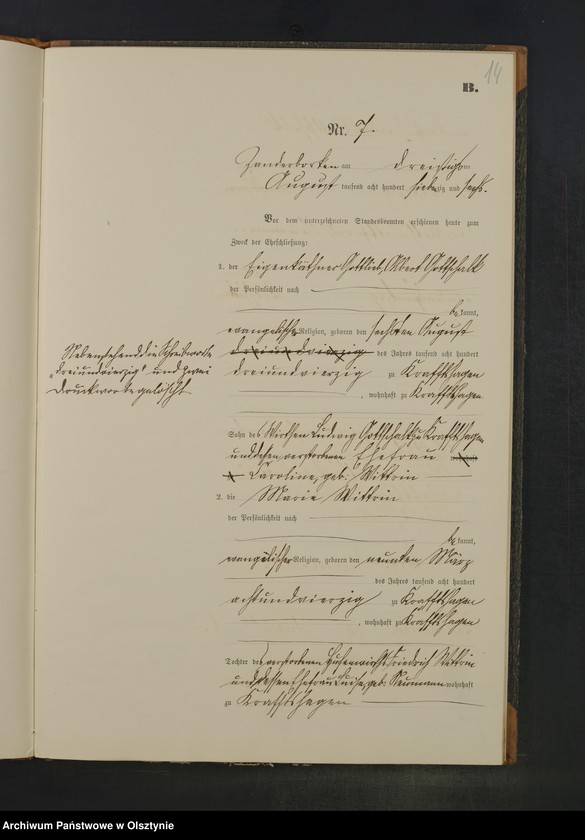 14
B.
Nr. 7.
Zanderborken am dreißigsten
August tausend acht hundert siebenzig und sechs.
Vor dem unterzeichneten Standesbeamten erschienen heute zum
Zweck der Eheschließung:
1. der Eigenkäthner Gottlieb, Albert Gottschalk
der Persönlichkeit nach
bekannt,
evangelischer Religion, geboren den sechsten August
dreiundvierzig des Jahres tausend acht hundert
dreiundvierzig zu Kraftshagen
, wohnhaft zu Kraftshagen
Nebenstehend die Schreibworte
„dreiundvierzig" und zwei
Druckworte gelöscht
Sohn des Wirthen Ludwig Gottschalk zu Kraftshagen
und dessen verstorbenen Ehefrau wohnhaft
Caroline, geb: Wittrin
2. die Marie Wittrin
der Persönlichkeit nach
bekannt,
evangelischer Religion, geboren den neunten März
des Jahres tausend acht hundert
achtundvierzig zu Kraftshagen
, wohnhaft zu Kraftshagen
Tochter des verstorbenen Hufenwirth Friedrich Wittrin
und dessen Ehefrau Luise, geb: Neumann wohnhaft
zu Kraftshagen
Archiwum Państwowe w Olsztynie